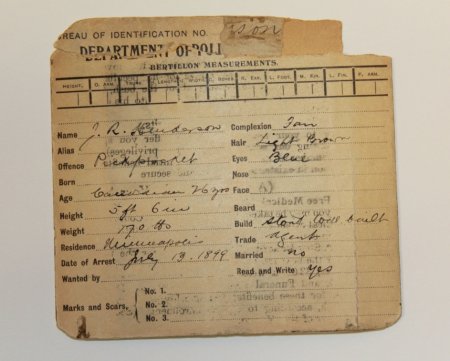 BUREAU OF IDENTIFICATION NO.
DEPARTMENT OF POLI
BERTILLON MEASUREMENTS.
HEIGHT, O. ARM, T LENGTH WIDTH C. BONES, R. EAR, L. FOOT, M. FIN, L. FIN, F. ARM,
Name J. R. Henderson Complexion Fair
Alias Hair Light Brown
Offence Pickpocket Eyes Blue
Born Nose
Age Canadian 26 yrs Face
Height 5 ft 6 in Beard
Weight 170 lbs Build Stout well built
Residence Minneapolis Trade agent
Date of Arrest July 13. 1899 Married no
Wanted by Read and Write yes
Marks and Scars, No. 1.
No. 2.
No. 3.